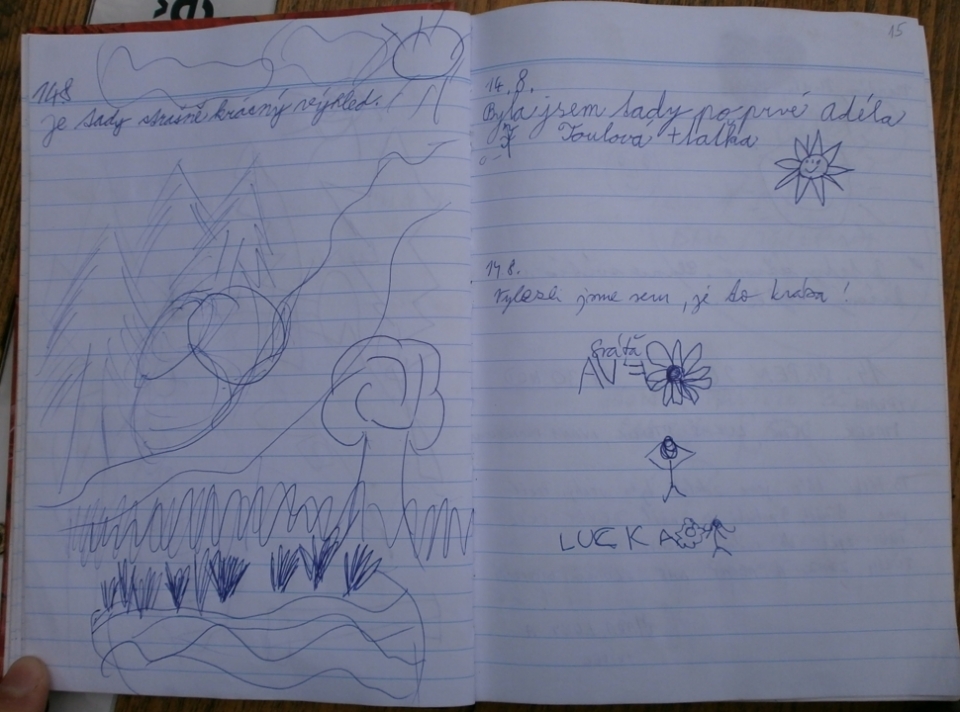 148
je tady strašně krásný výhled.
15
14.8.
Byla jsem tady poprvé Adéla
Toulová + taťka
14 8.
Vylezli jsme sem, je to krása!
LUCKA